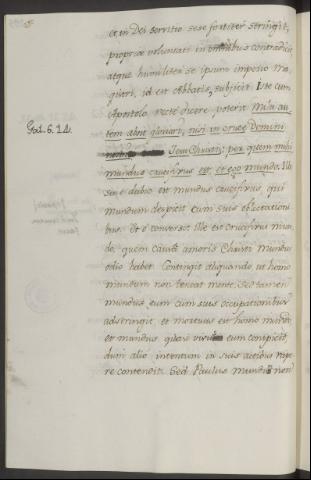 et in Dei servitio sese fortiter stringit,
propriæ voluntati in omnibus contradicit
atque humiliter se ipsum imperio Ma-
gistri, id est Abbatis, subjicit. Iste cum
Apostolo recte dicere poterit Mihi au-
Gal. 6. 14.
tem absit gloriari, nisi in cruce Domini
nostri Jesu Christi; per quem mihi
mundus crucifixus est, et ego mundo. Illi
sine dubio est mundus crucifixus, qui
mundum despicit cum suis oblectationi-
bus. Et e converso ille est crucifixus mun-
do, quem causa amoris Christi mundus
odio habet. Contingit aliquando ut homo
mundum non teneat mente, sed tamen
mundus eum cum suis occupationibus
adstringit, et mortuus est homo mundo
et mundus quasi vivus eum conspicit,
dum alio intentum in suis actibus rape-
re contendit. Sed Paulus mundus nec